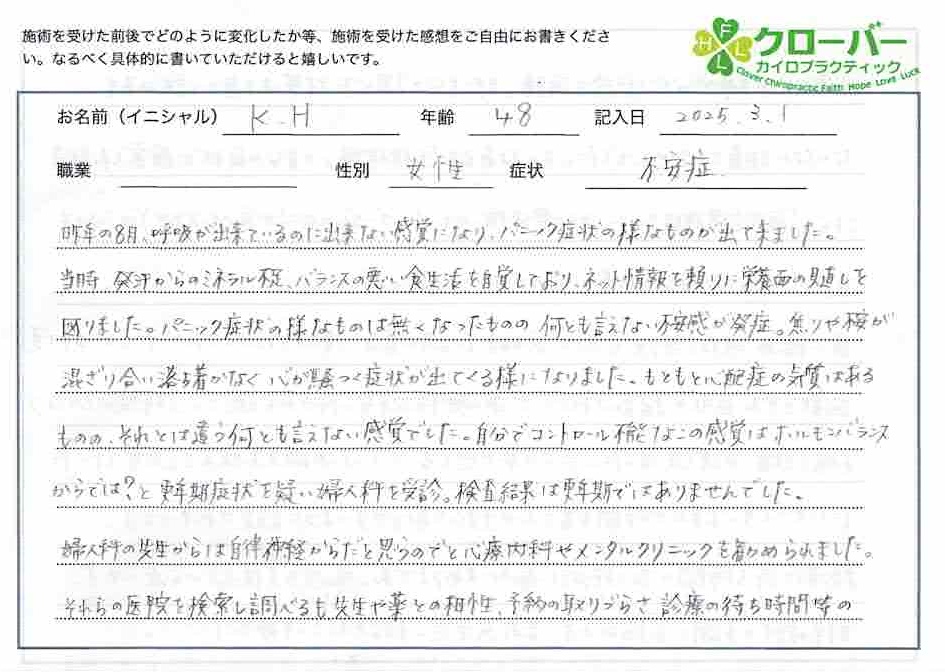 施術を受けた前後でどのように変化したか等、施術を受けた感想をご自由にお書きくださ
い。なるべく具体的に書いていただけると嬉しいです。
H F L L
クローバー
カイロプラクティック
Clover Chiropractic Faith Hope Love Luck
お名前（イニシャル） K.H 年齢 48 記入日 2025.3.1
職業 性別 女性 症状 不安症
昨年の8月、呼吸が出来ているのに出来ない感覚になり、パニック症状の様なものが出て来ました。
当時、発汗からのミネラル不足、バランスの悪い食生活を自覚しており、ネット情報を頼りに栄養面の見直しを
図りました。パニック症状の様なものは無くなったものの 何とも言えない不安感が発症。焦りや不安が
混ざり合い落ち着かなく 心が騒つく症状が出てくる様になりました。もともと心配症の気質はある
ものの、それとは違う何とも言えない感覚でした。自分でコントロール不能なこの感覚はホルモンバランス
からでは?と更年期症状を疑い婦人科を受診。検査結果は更年期ではありませんでした。
婦人科の先生からは自律神経からだと思うのでと心療内科やメンタルクリニックを勧められました。
それらの医院を検索し調べるも先生や薬との相性、予約の取りづらさ 診療の待ち時間等の